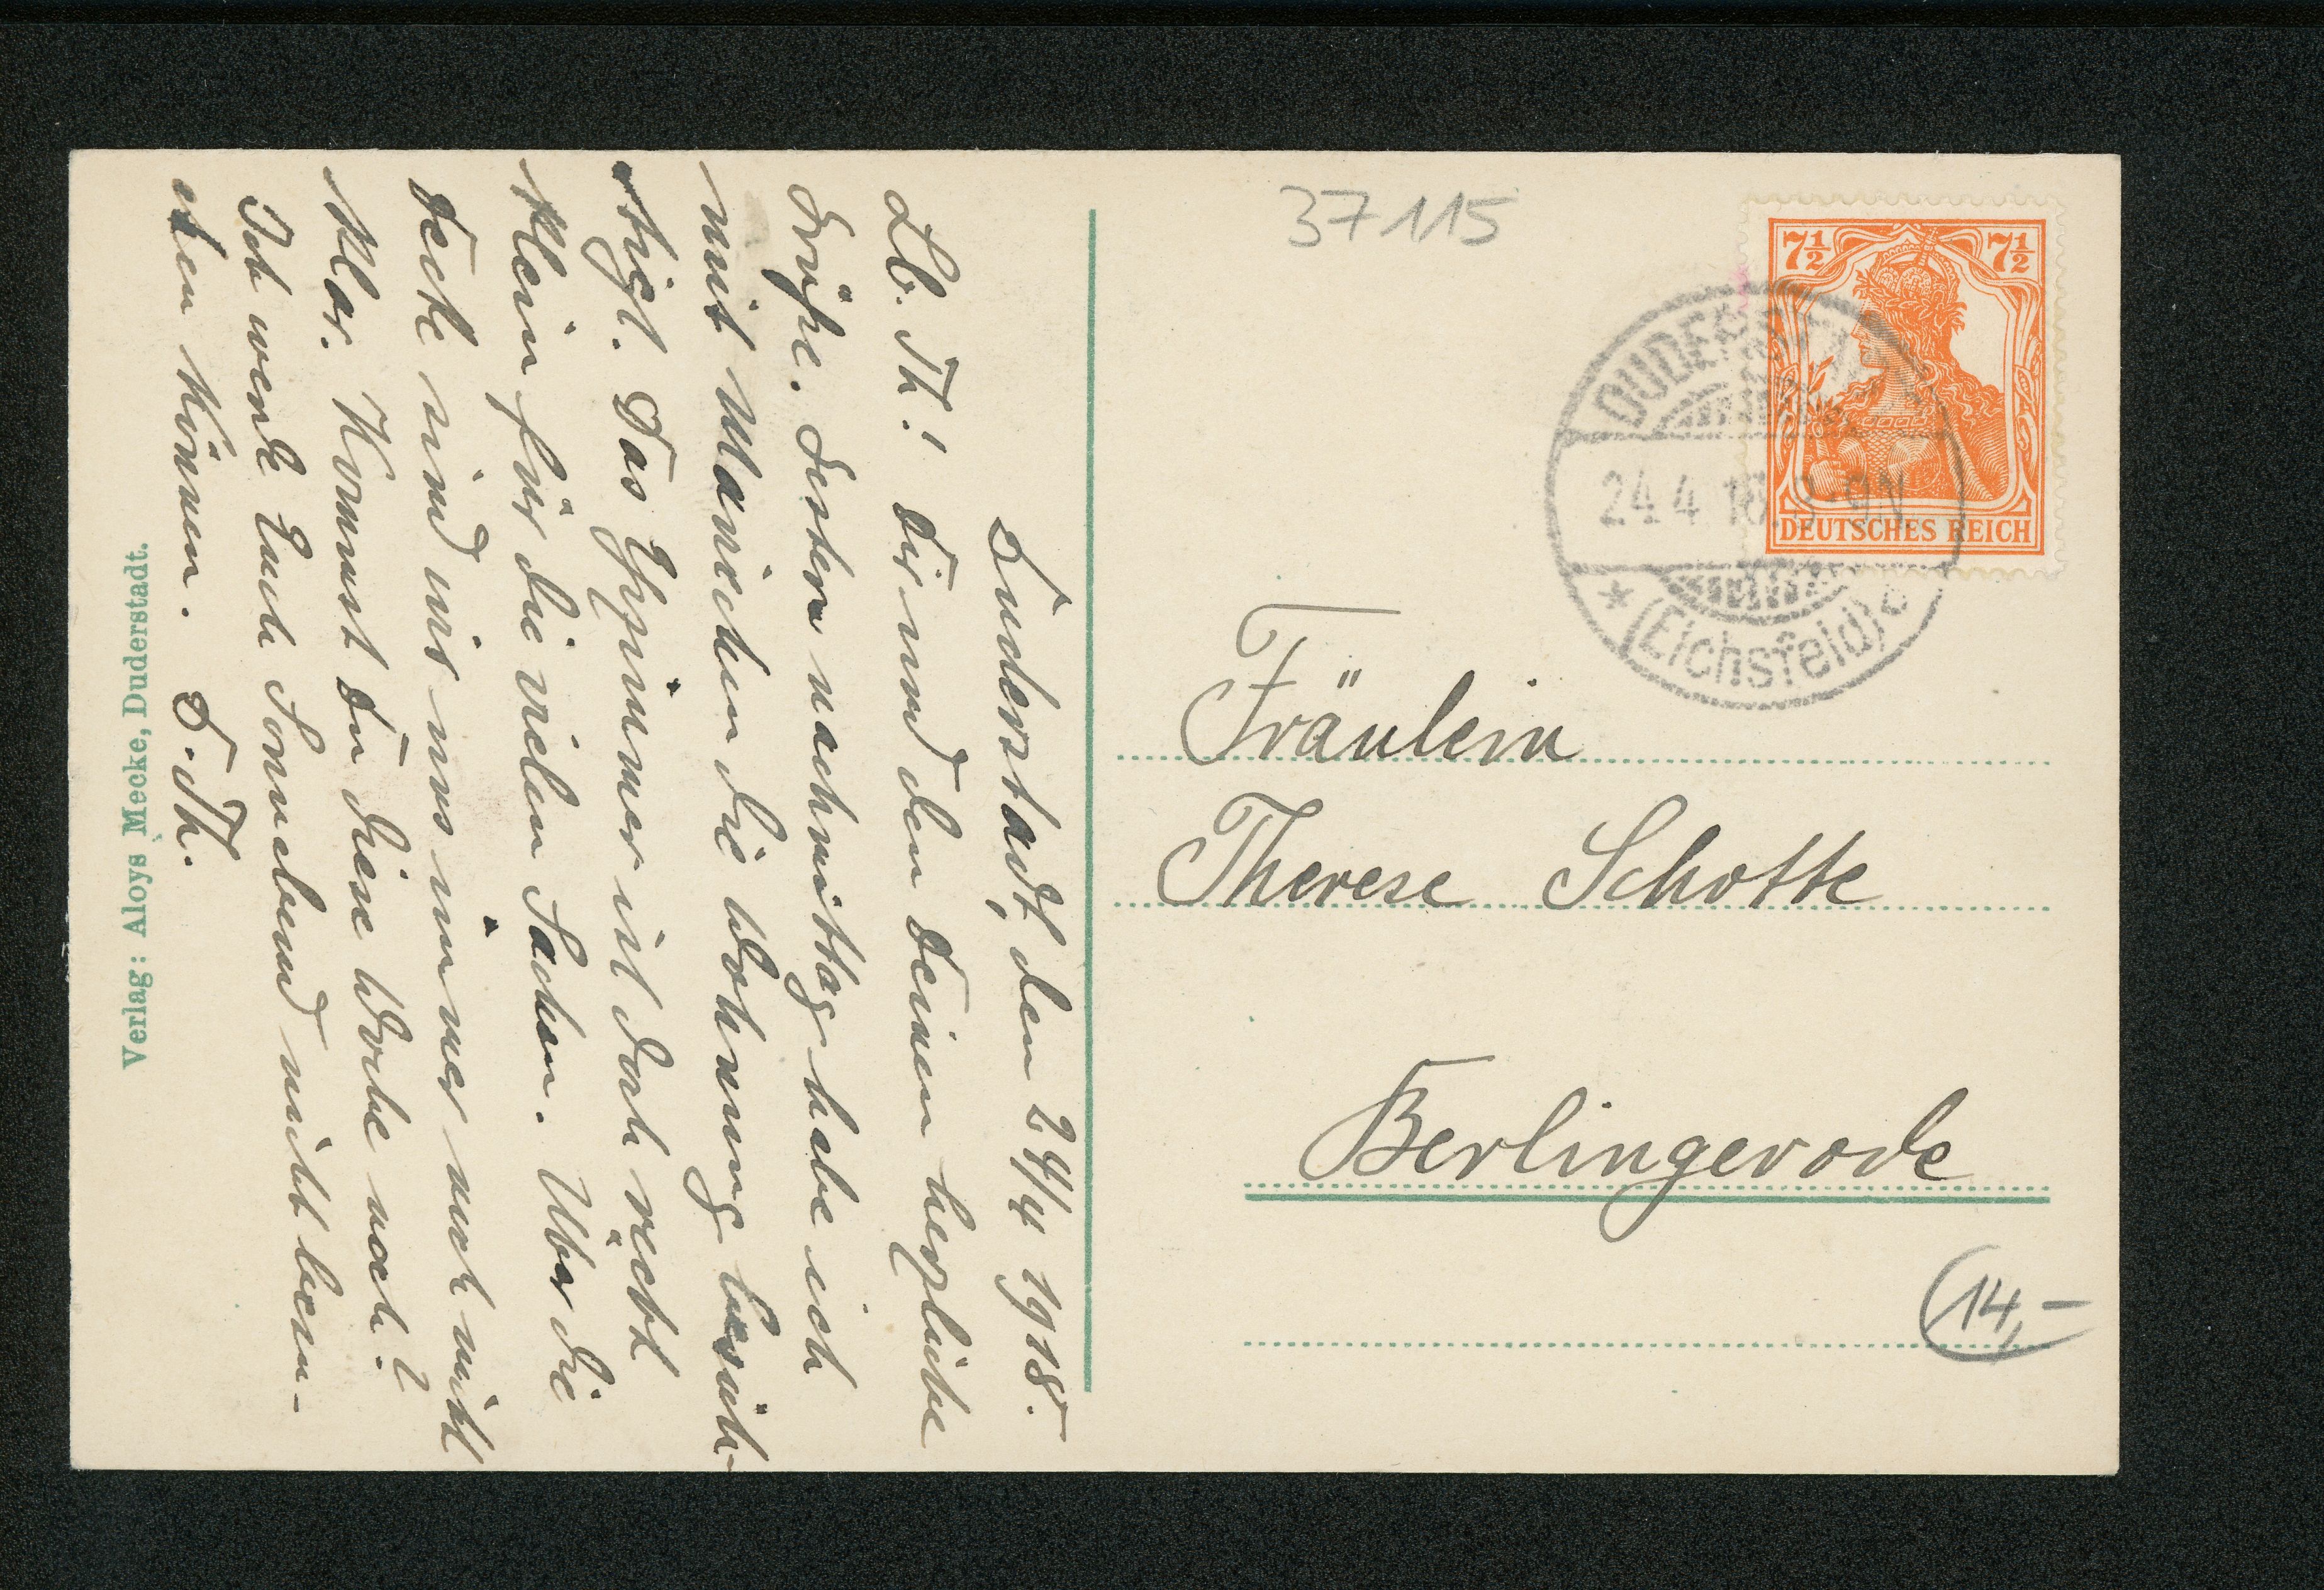 Duderstadt, den 24/4 1918.
Lb. Th.! Dir und den Deinen herzliche
Grüße. Gestern nachmittag habe ich
mit Mariechen die Wohnung besich-
tigt. Das Eßzimmer ist doch recht
klein für die vielen Sachen. Über die
Decke sind wir uns immer noch nicht
klar. Kommst Du diese Woche noch?
Ich werde Euch Sonnabend nicht
können. D. Th.
Verlag: Aloys Mecke, Duderstadt.
37115
7½ 7½
DEUTSCHES REICH
DUDERSTADT
24.4.18.8-9N.
* (Eichsfeld)
Fräulein
Therese Schotte
Berlingerode
14,-